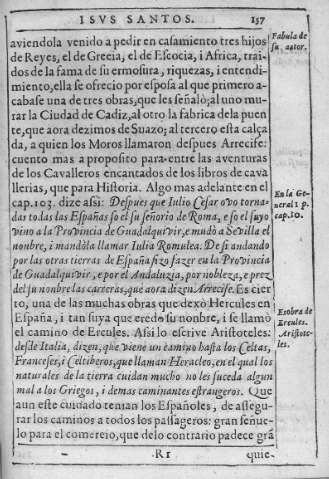 ISVS SANTOS. 157
aviendola venido a pedir en casamiento tres hijos
de Reyes, el de Grecia, el de Escocia, i Africa, trai-
dos de la fama de su ermosura, riquezas, i entendi-
miento, ella se ofrecio por esposa al que primero a-
cabase una de tres obras, que les señalò; al uno mu-
rar la Ciudad de Cadiz, al otro la fabrica dela puen
te, que aora dezimos de Suazo; al tercero esta calça
da, a quien los Moros llamaron despues Arrecife:
cuento mas a proposito para entre las aventuras
de los Cavalleros encantados de los libros de cava
llerias, que para Historia. Algo mas adelante en el
cap. 103. dize assi: Despues que Iulio Cesar ovo torna-
das todas las Españas so el su señorio de Roma, e so el suyo
vino a la Provincia de Guadalquivir, e mudò a Sevilla el
nonbre, i mandòla llamar Iulia Romulea. De si andando
por las otras tierras de España fizo fazer en la Provincia
de Guadalquivir, e por el Andaluzia, por nobleza, e prez
del su nonbre las carreras, que aora dizen Arrecife. Es cier
to, una de las muchas obras que dexò Hercules en
España, i tan suya que eredò su nonbre, i se llamò
el camino de Ercules. Assi lo escrive Aristoteles:
desde Italia, dizen, que viene un camino hasta los Celtas,
Franceses, i Celtiberos, que llaman Heracleo, en el qual los
naturales de la tierra cuidan mucho no les suceda algun
mal a los Griegos, i demas caminantes estrangeros. Que
aun este cuidado tenian los Españoles, de assegu-
rar los caminos a todos los passageros: gran señue-
lo para el comercio, que delo contrario padece grã
Rr quie-
Fabula de
su autor.
En la Ge-
neral 1 p.
cap. 10.
Es obra de
Ercules.
Aristote-
les.